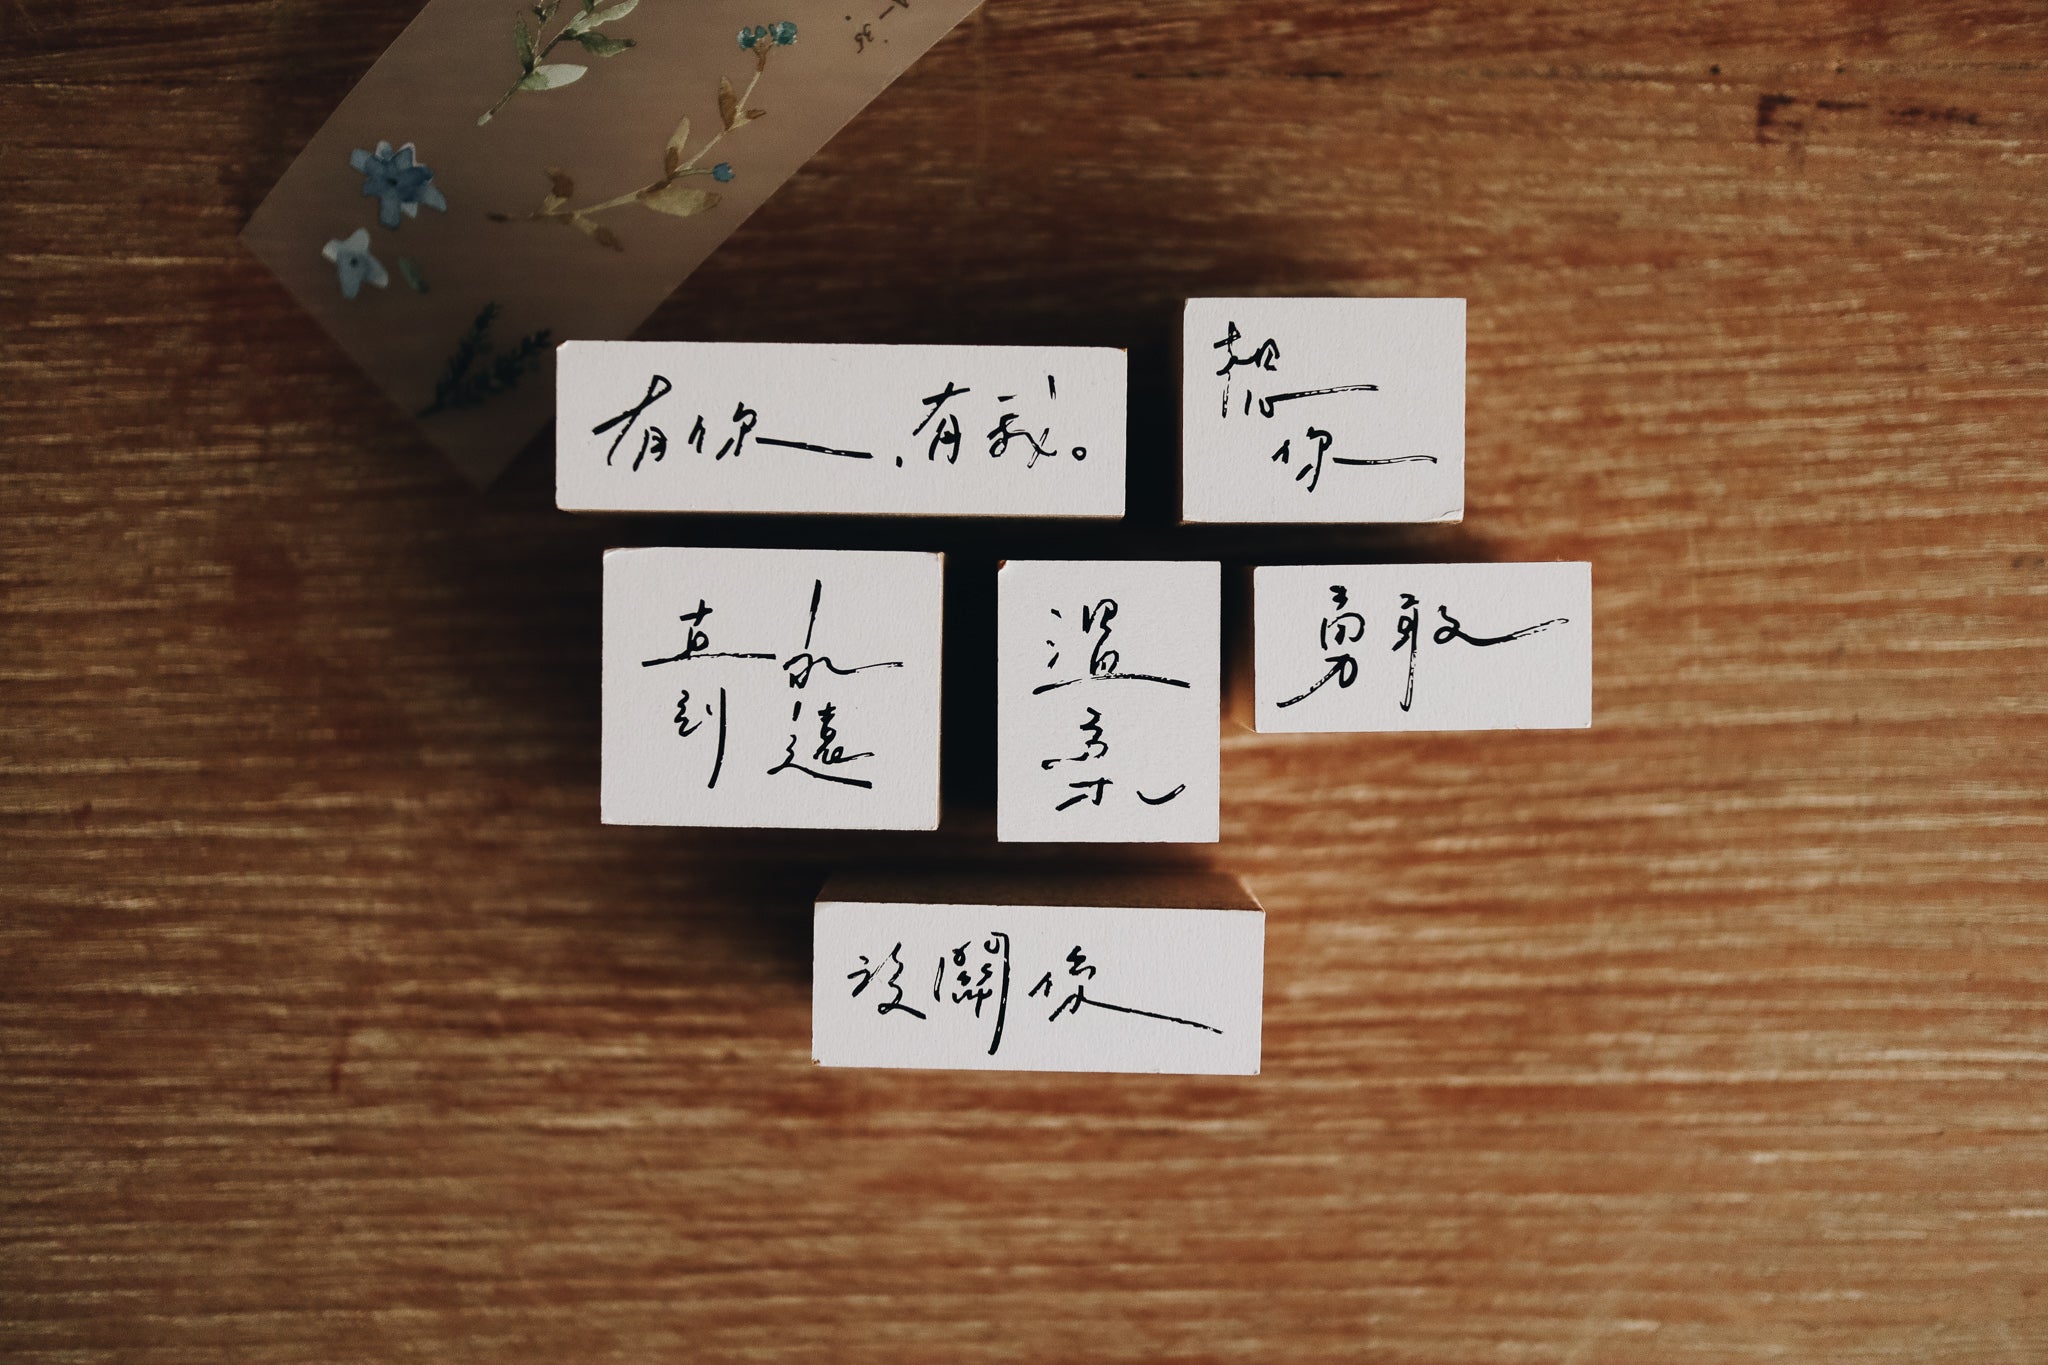 有你、有我。
想你
直到
永遠
溫柔
勇敢
沒關係